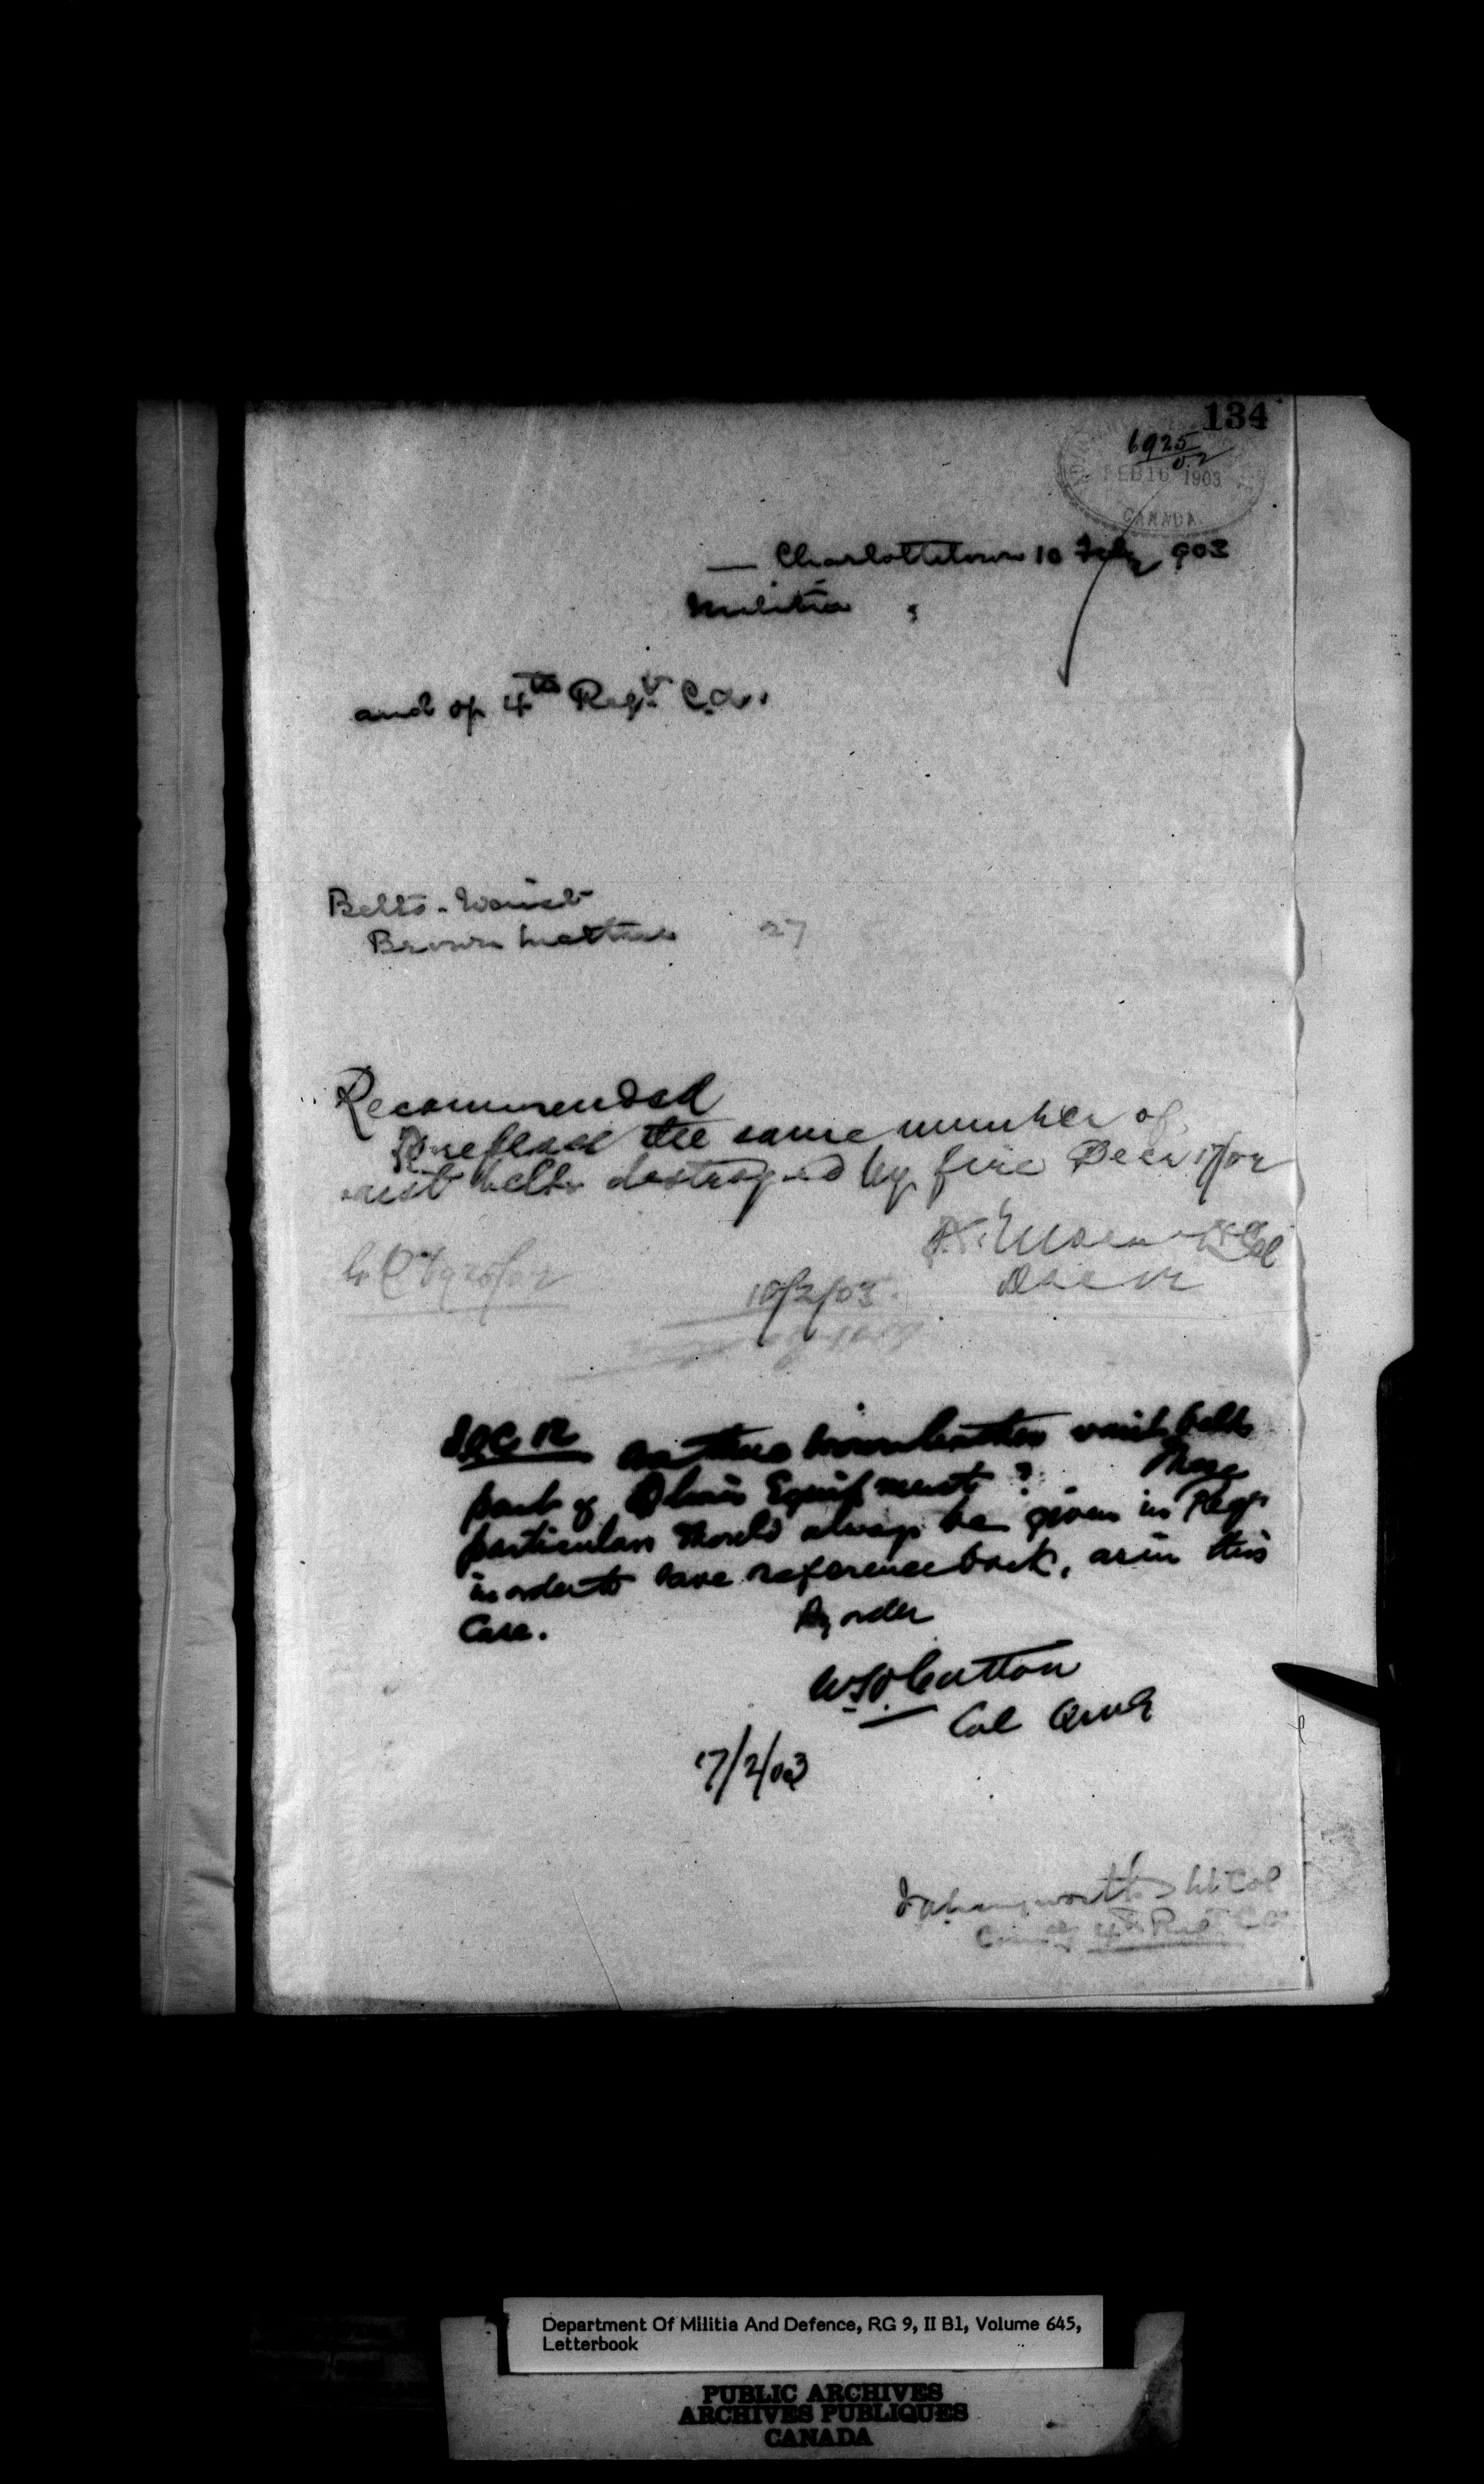 134
6925
02
FEB 16 1903
CANADA
Charlottetown 10 Feby 903
Militia
and of 4th Regt. C.A.
Belts - Waist
Brown Leather 27
Recommended
To replace the same number of
waist belts destroyed by fire Decr 17/02
Lt Col
D.O.C. 12
10/2/03
D.O.C. 12 Are these brown leather waist belts
part of Oliver Equipment? These
particulars should always be given in Reqn
in order to save reference back, as in this
Case. By order
Col QMG
17/2/03
Lt Col
4th Regt CA
Department Of Militia And Defence, RG 9, II B1, Volume 645,
Letterbook
PUBLIC ARCHIVES
ARCHIVES PUBLIQUES
CANADA